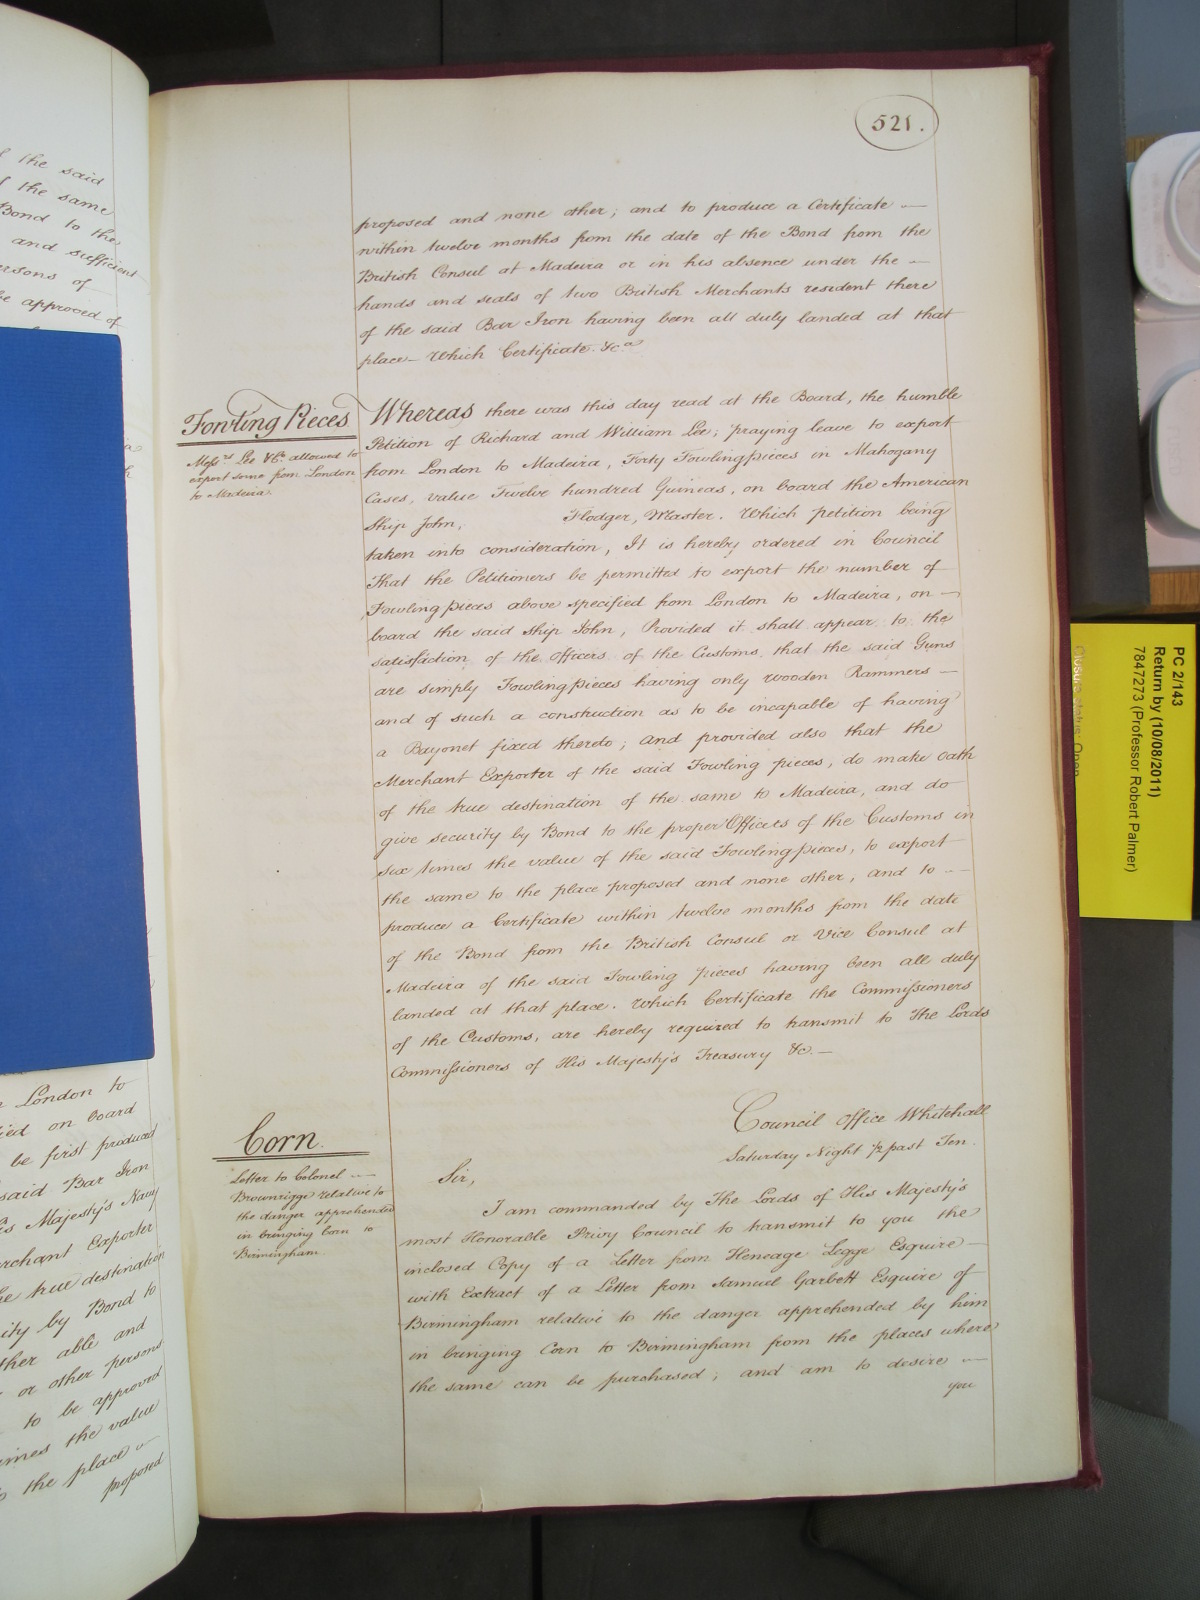 521.
proposed and none other; and to produce a Certificate —
within twelve months from the date of the Bond from the
British Consul at Madeira or in his absence under the —
hands and seals of two British Merchants resident there
of the said Bar Iron having been all duly landed at that
place — Which Certificate &c.a
Fowling Pieces
Messrs. Lee & Co. allowed to
export some from London
to Madeira.
Whereas there was this day read at the Board, the humble
Petition of Richard and William Lee; praying leave to export
from London to Madeira, Forty Fowlingpieces in Mahogany
Cases, value Twelve hundred Guineas, on board the American
Ship John, Flodger, Master. Which petition being
taken into consideration, It is hereby ordered in Council
That the Petitioners be permitted to export the number of
Fowlingpieces above specified from London to Madeira, on —
board the said ship John, Provided it shall appear to the
satisfaction of the Officers of the Customs that the said Guns
are simply Fowlingpieces having only wooden Rammers —
and of such a construction as to be incapable of having
a Bayonet fixed thereto; and provided also that the
Merchant Exporter of the said Fowling pieces, do make Oath
of the true destination of the same to Madeira, and do
give security by Bond to the proper Officers of the Customs in
six times the value of the said Fowlingpieces, to export
the same to the place proposed and none other, and to —
produce a Certificate within twelve months from the date
of the Bond from the British Consul or Vice Consul at
Madeira of the said Fowling pieces having been all duly
landed at that place. Which Certificate the Commissioners
of the Customs, are hereby required to transmit to The Lords
Commissioners of His Majesty's Treasury &c. —
Council Office Whitehall
Saturday Night 1/2 past Ten.
Corn.
Letter to Colonel —
Brownrigge relative to
the danger apprehended
in bringing Corn to
Birmingham.
Sir,
I am commanded by The Lords of His Majesty's
most Honorable Privy Council to transmit to you the
inclosed Copy of a Letter from Heneage Legge Esquire —
with Extract of a Letter from Samuel Garbett Esquire of
Birmingham relative to the danger apprehended by him
in bringing Corn to Birmingham from the places where
the same can be purchased; and am to desire —
you
the said
the same
Bond to the
and sufficient
persons of
be approved of
London to
on board
be first produced
said Bar Iron
Majesty's Navy
Merchant Exporter
the true destination
by Bond to
other able and
or other persons
to be approved
times the value
to the place —
proposed
PC 2/143
Return by (10/08/2011)
7847273 (Professor Robert Palmer)
Closure status: Open